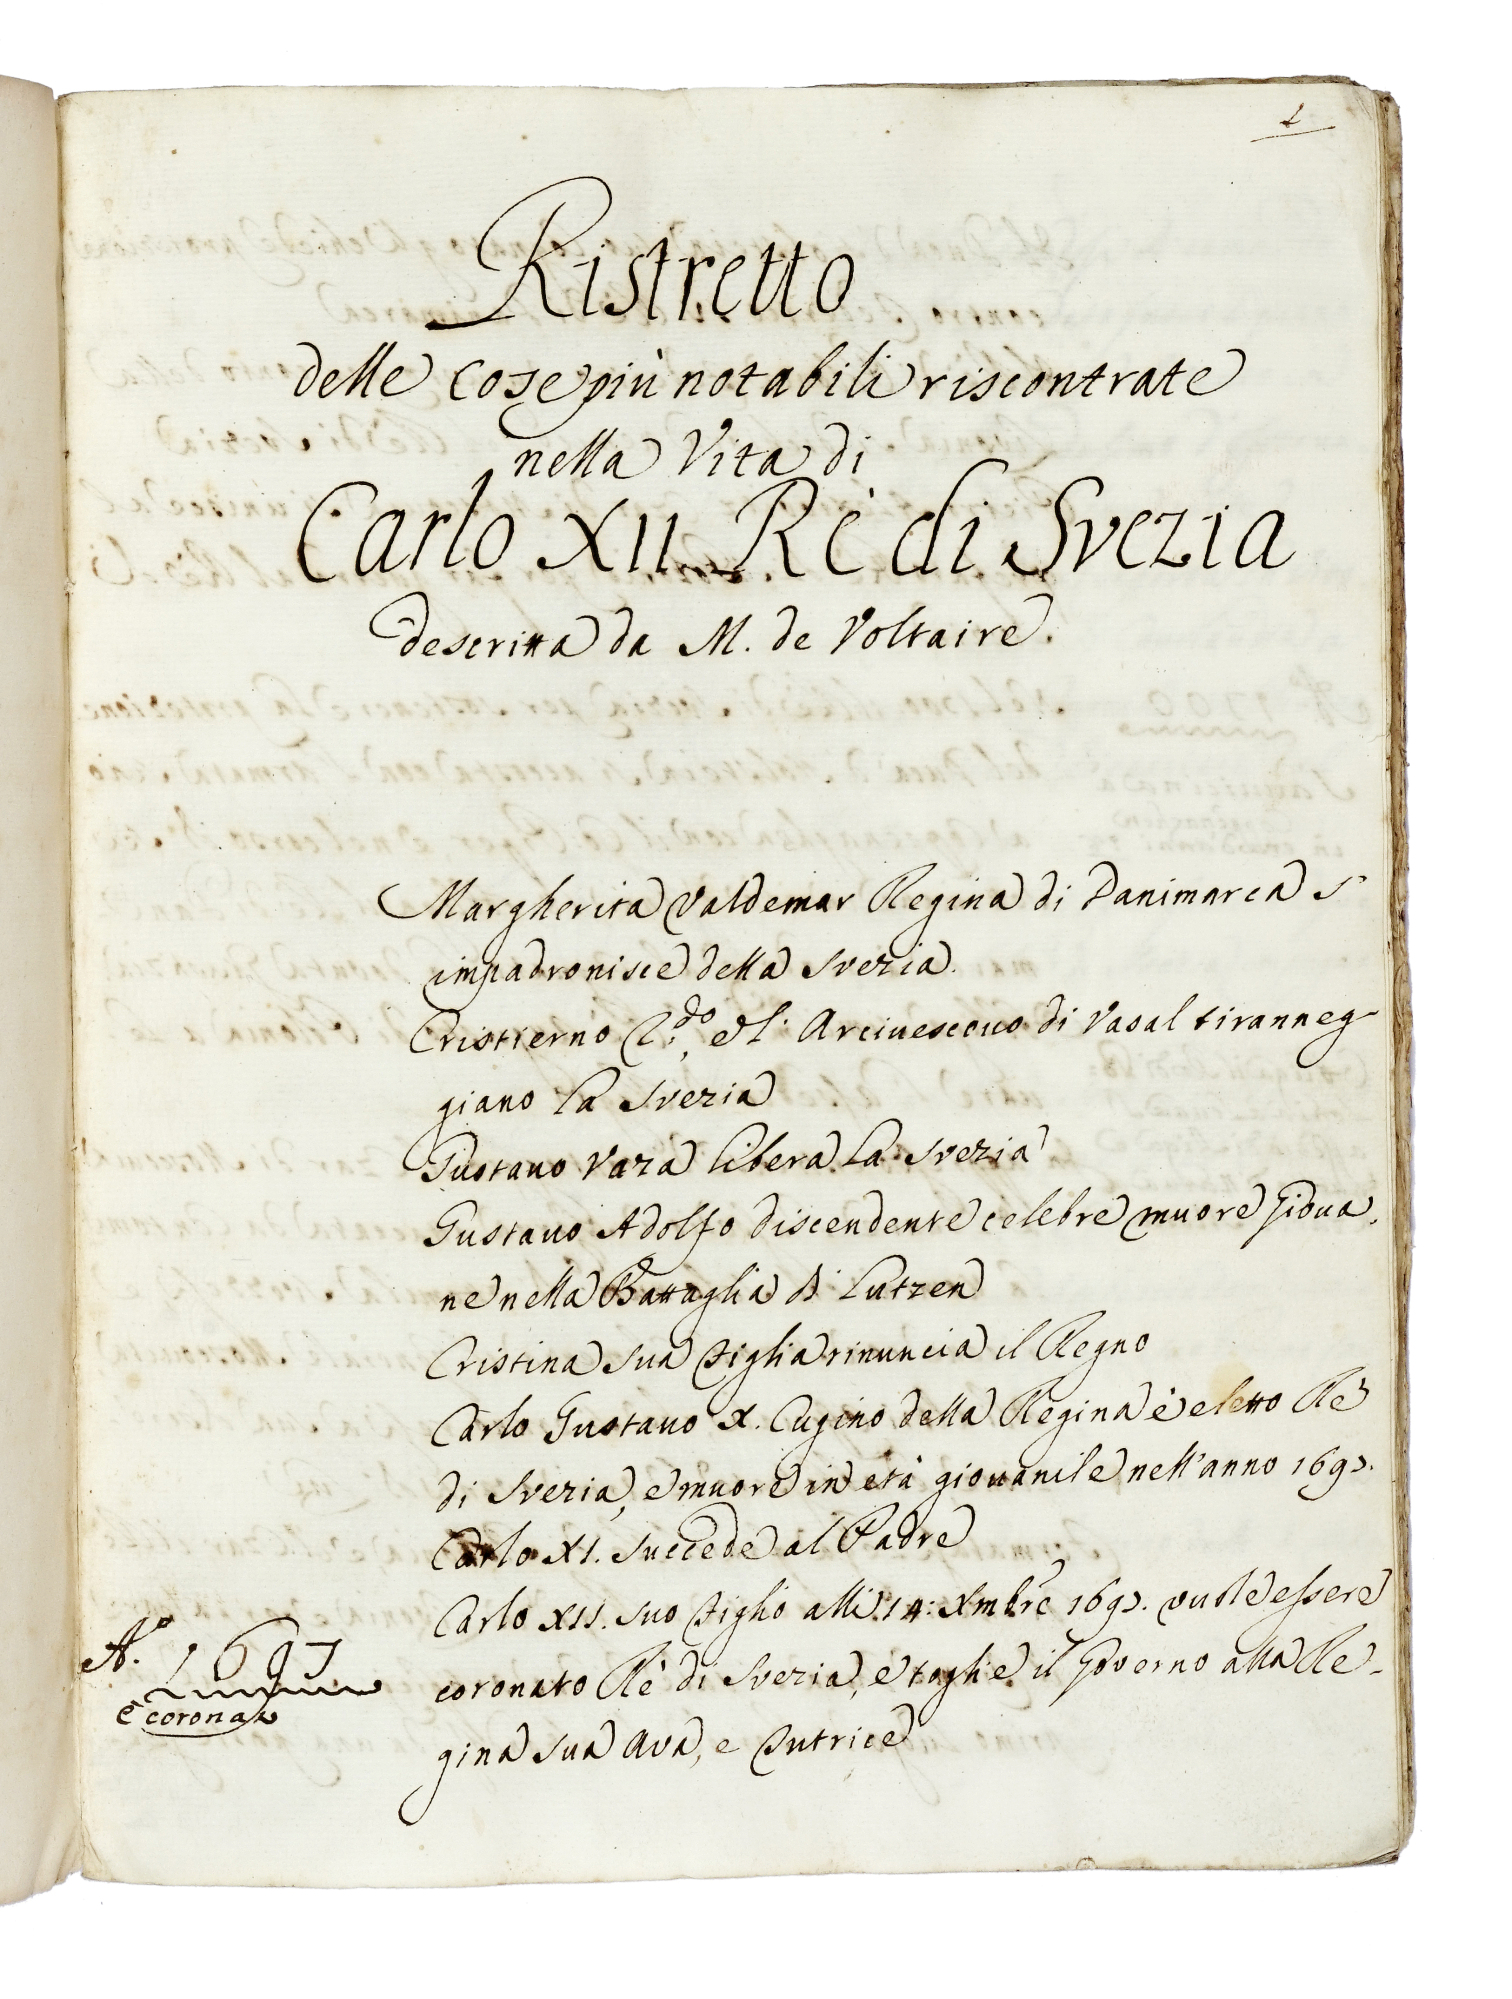 1
Ristretto
delle Cose più notabili riscontrate
nella Vita di
Carlo XII. Rè di Svezia
descritta da M. de Voltaire.
Margherita Valdemar Regina di Danimarca s'
impadronisce della Svezia.
Cristierno 2.do, e l'Arcivescovo di Vasal tiranneg-
giano la Svezia
Gustavo Vaza libera la Svezia
Gustavo Adolfo discendente celebre muore giova,
ne nella Battaglia di Lutzen
Cristina sua figlia rinuncia il Regno
Carlo Gustavo X. Cugino della Regina è eletto Rè
di Svezia, e muore in età giovanile nell'anno 1697.
Carlo XI. succede al Padre
Carlo XII. suo figlio alli 14: Xmbre 1697. vuole essere
coronato Rè di Svezia, e toglie il Governo alla Re-
gina sua Ava, e Tutrice
A.o 1697
è coronato